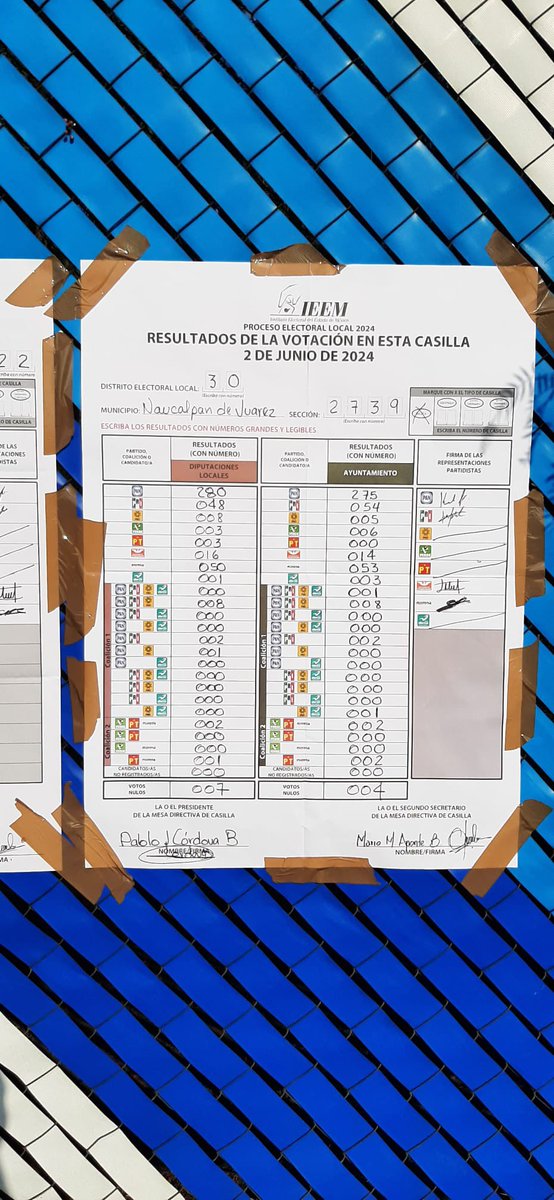 22
IEEM
Instituto Electoral del Estado de México
PROCESO ELECTORAL LOCAL 2024
RESULTADOS DE LA VOTACIÓN EN ESTA CASILLA
2 DE JUNIO DE 2024
DISTRITO ELECTORAL LOCAL: 30
(Escribe con número)
MUNICIPIO: Naucalpan de Juarez. SECCIÓN: 2739
(Escribe con número)
MARQUE CON X EL TIPO DE CASILLA
ESCRIBA EL NÚMERO DE CASILLA
ESCRIBA LOS RESULTADOS CON NÚMEROS GRANDES Y LEGIBLES
PARTIDO, COALICIÓN O CANDIDATO/A
RESULTADOS (CON NÚMERO)
DIPUTACIONES LOCALES
PARTIDO, COALICIÓN O CANDIDATO/A
RESULTADOS (CON NÚMERO)
AYUNTAMIENTO
FIRMA DE LAS REPRESENTACIONES PARTIDISTAS
PAN 280 PAN 275 PAN
PRI 048 PRI 054 PRI
008 005
003 006
PT 003 PT 000 PT
016 014
morena 050 morena 053 morena
001 003
Coalición 1
000 001
008 008
000 000
000 000
002 002
001 000
000 000
000 000
000 000
000 000
000 001
Coalición 2
PT morena 002 PT morena 002
PT 000 PT 000
morena 000 morena 000
PT morena 001 PT morena 002
CANDIDATOS/AS NO REGISTRADOS/AS 000 CANDIDATOS/AS NO REGISTRADOS/AS 000
VOTOS NULOS 007 VOTOS NULOS 004
LA O EL PRESIDENTE
DE LA MESA DIRECTIVA DE CASILLA
Pablo J Córdova B
NOMBRE/FIRMA
LA O EL SEGUNDO SECRETARIO
DE LA MESA DIRECTIVA DE CASILLA
Mario M Aponte B
NOMBRE/FIRMA